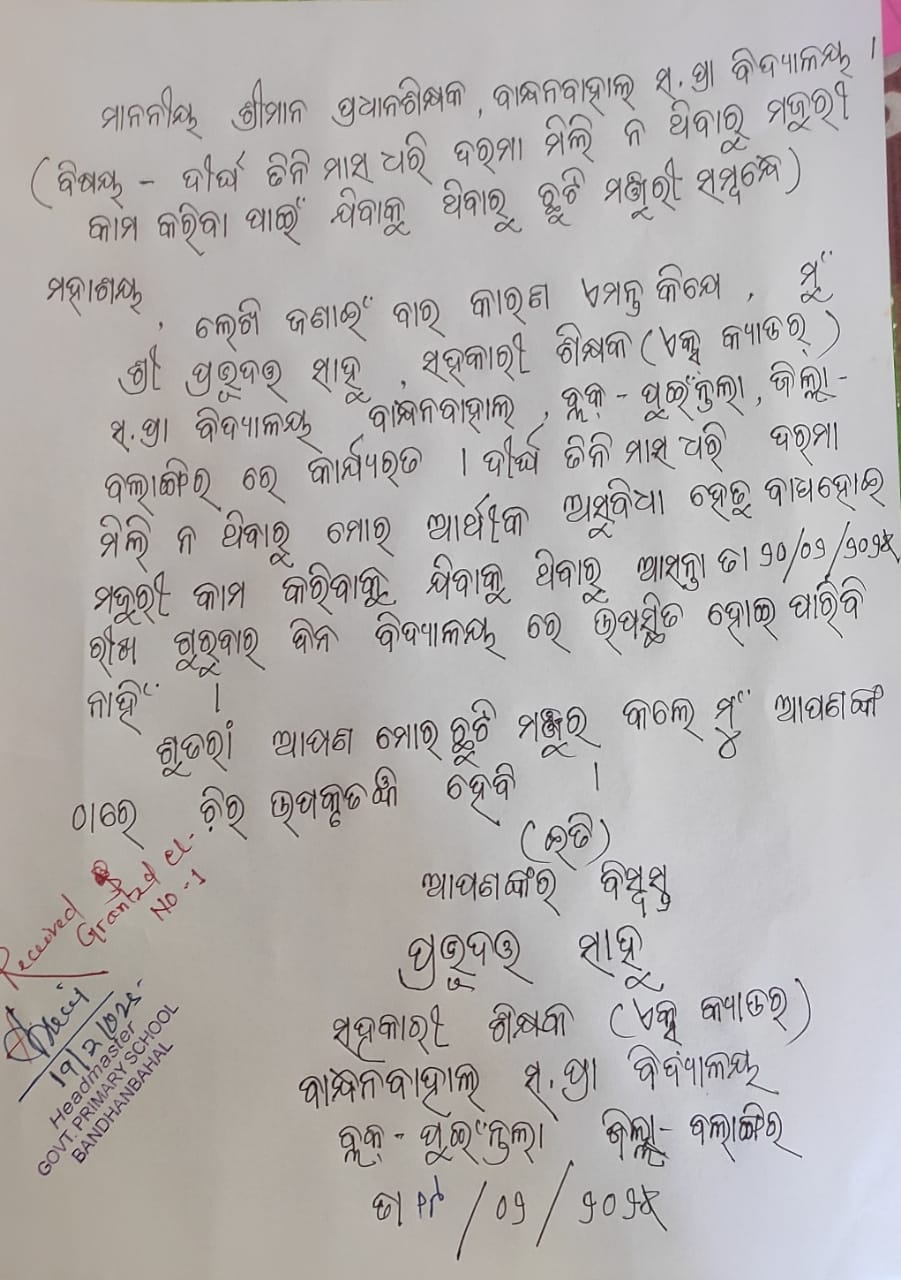 ମାନନୀୟ ଶ୍ରୀମାନ ପ୍ରଧାନଶିକ୍ଷକ, ବାନ୍ଧନବାହାଲ ସ.ପ୍ରା ବିଦ୍ୟାଳୟ ।
(ବିଷୟ - ଦୀର୍ଘ ତିନି ମାସ ଧରି ଦରମା ମିଲି ନ ଥିବାରୁ ମଜୁରୀ
କାମ କରିବା ପାଇଁ ଯିବାକୁ ଥିବାରୁ ଛୁଟି ମଞ୍ଜୁରୀ ସମ୍ବନ୍ଧେ)
ମହାଶୟ,
ଲେଖି ଜଣାଇଁ ବାର କାରଣ ଏମନ୍ତ କିଯେ, ମୁଁ
ଶ୍ରୀ ପ୍ରଭୁଦତ୍ତ ସାହୁ, ସହକାରୀ ଶିକ୍ଷକ (ଏକ୍ସ କ୍ୟାଡର୍)
ସ.ପ୍ରା ବିଦ୍ୟାଳୟ ବାନ୍ଧନବାହାଲ, ବ୍ଲକ୍ - ପୁଇଁନ୍ତଲା, ଜିଲ୍ଲା-
ବଲାଙ୍ଗିର ରେ କାର୍ଯ୍ୟରତ । ଦୀର୍ଘ ତିନି ମାସ ଧରି ଦରମା
ମିଲି ନ ଥିବାରୁ ମୋର ଆର୍ଥୀକ ଅସୁବିଧା ହେତୁ ବାଧହୋଇ
ମଜୁରୀ କାମ କରିବାକୁ ଯିବାକୁ ଥିବାରୁ ଆସନ୍ତା ତା ୨୦/୦୨/୨୦୨୫
ରୀଖ ଗୁରୁବାର ଦିନ ବିଦ୍ୟାଳୟ ରେ ଉପସ୍ଥିତ ହୋଇ ପାରିବି
ନାହିଁ ।
ଶୁତରାଂ ଆପଣ ମୋର ଛୁଟି ମଞ୍ଜୁର କଲେ ମୁଁ ଆପଣଙ୍କ
ଠାରେ ଚ଼ିର ଉପକୃତଙ୍କି ହେବି ।
(ଇତି)
ଆପଣଙ୍କର ବିସ୍ୱସ୍ତ
ପ୍ରଭୁଦତ୍ତ ସାହୁ
ସହକାରୀ ଶିକ୍ଷକ (ଏକ୍ସ କ୍ୟାଡର୍)
ବାନ୍ଧନବାହାଲ ସ.ପ୍ରା ବିଦ୍ୟାଳୟ
ବ୍ଲକ୍ - ପୁଇଁନ୍ତଲା ଜିଲ୍ଲା - ବଲାଙ୍ଗିର
ତା ୧୯/୦୨/୨୦୨୫
Received
Granted CL-
No-1
19/2/025
Headmaster
GOVT. PRIMARY SCHOOL
BANDHANBAHAL